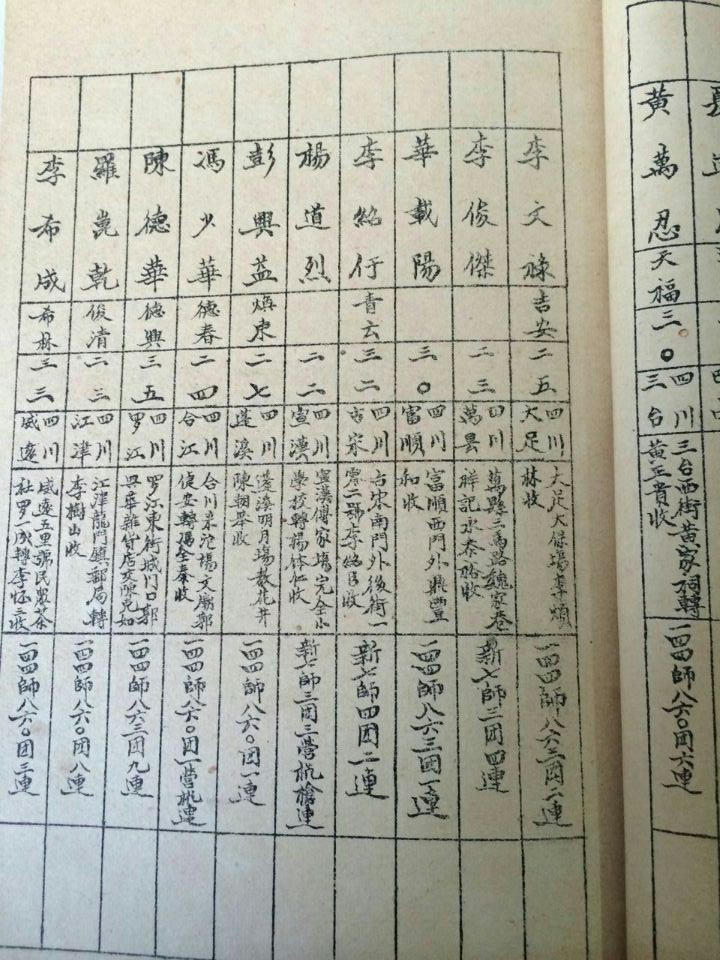 黃萬忍
天福
三〇
四川
三台
三台西街黃家祠轉
黃玉貴收
一四四師八六〇团六連
李文祿
吉安
二五
四川
大足
大足大保場李煩
林收
一四四師八六三团二連
李俊傑
二三
四川
萬县
萬縣三馬路魏家巷
祥記永泰
收
新七師三团四連
華載陽
三〇
四川
富順
富順西門外鼎豐
和收
一四四師八六三团一連
李紹行
青云
三二
四川
古宋
古宋南門外後街一
零二號李紹
收
新七師四团二連
楊道烈
二二
四川
宣漢
宣漢傅家塲完全小
學校轉楊体仁收
新七師三团三營机槍連
彭興益
煥東
二七
四川
蓬溪
蓬溪明月塲
花井
陳朝舉收
一四四師八六〇团一連
馮少華
德春
二四
四川
合江
合川
沱塲文
郭
俊安轉馮全泰收
一四四師八六〇团一營机連
陳德華
德興
三五
四川
罗江
罗江東街城門口郭
興華雜貨店交陳克如
一四四師八六三团九連
羅崑乾
俊清
二三
四川
江津
江津龍門鎮郵局轉
李樹山收
一四四師八六〇团八連
李希成
希林
三三
四川
威遠
威遠五里號民眾茶
社罗一成轉李怀三收
一四四師八六〇团三連